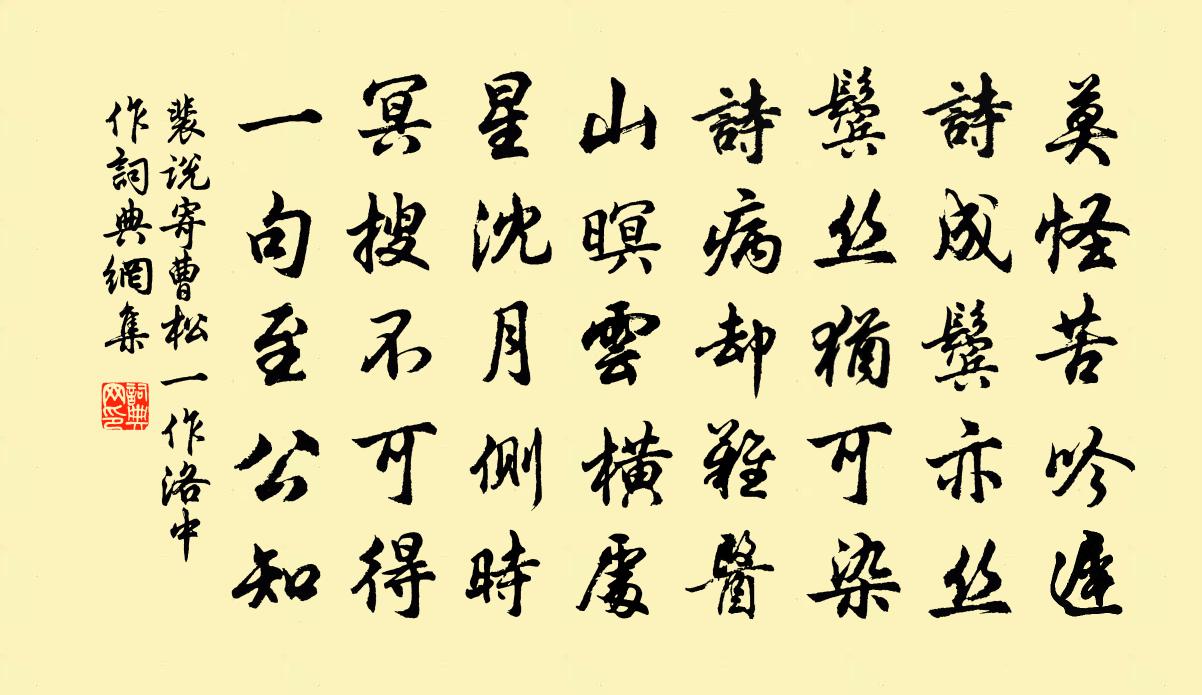 莫怪苦吟遲
詩成鬢亦丝
鬢丝猶可染
詩病却難醫
山暝雲橫處
星沈月側時
冥搜不可得
一句至公知
裴说寄曹松一作洛中
作詞典網集
詞典
网印